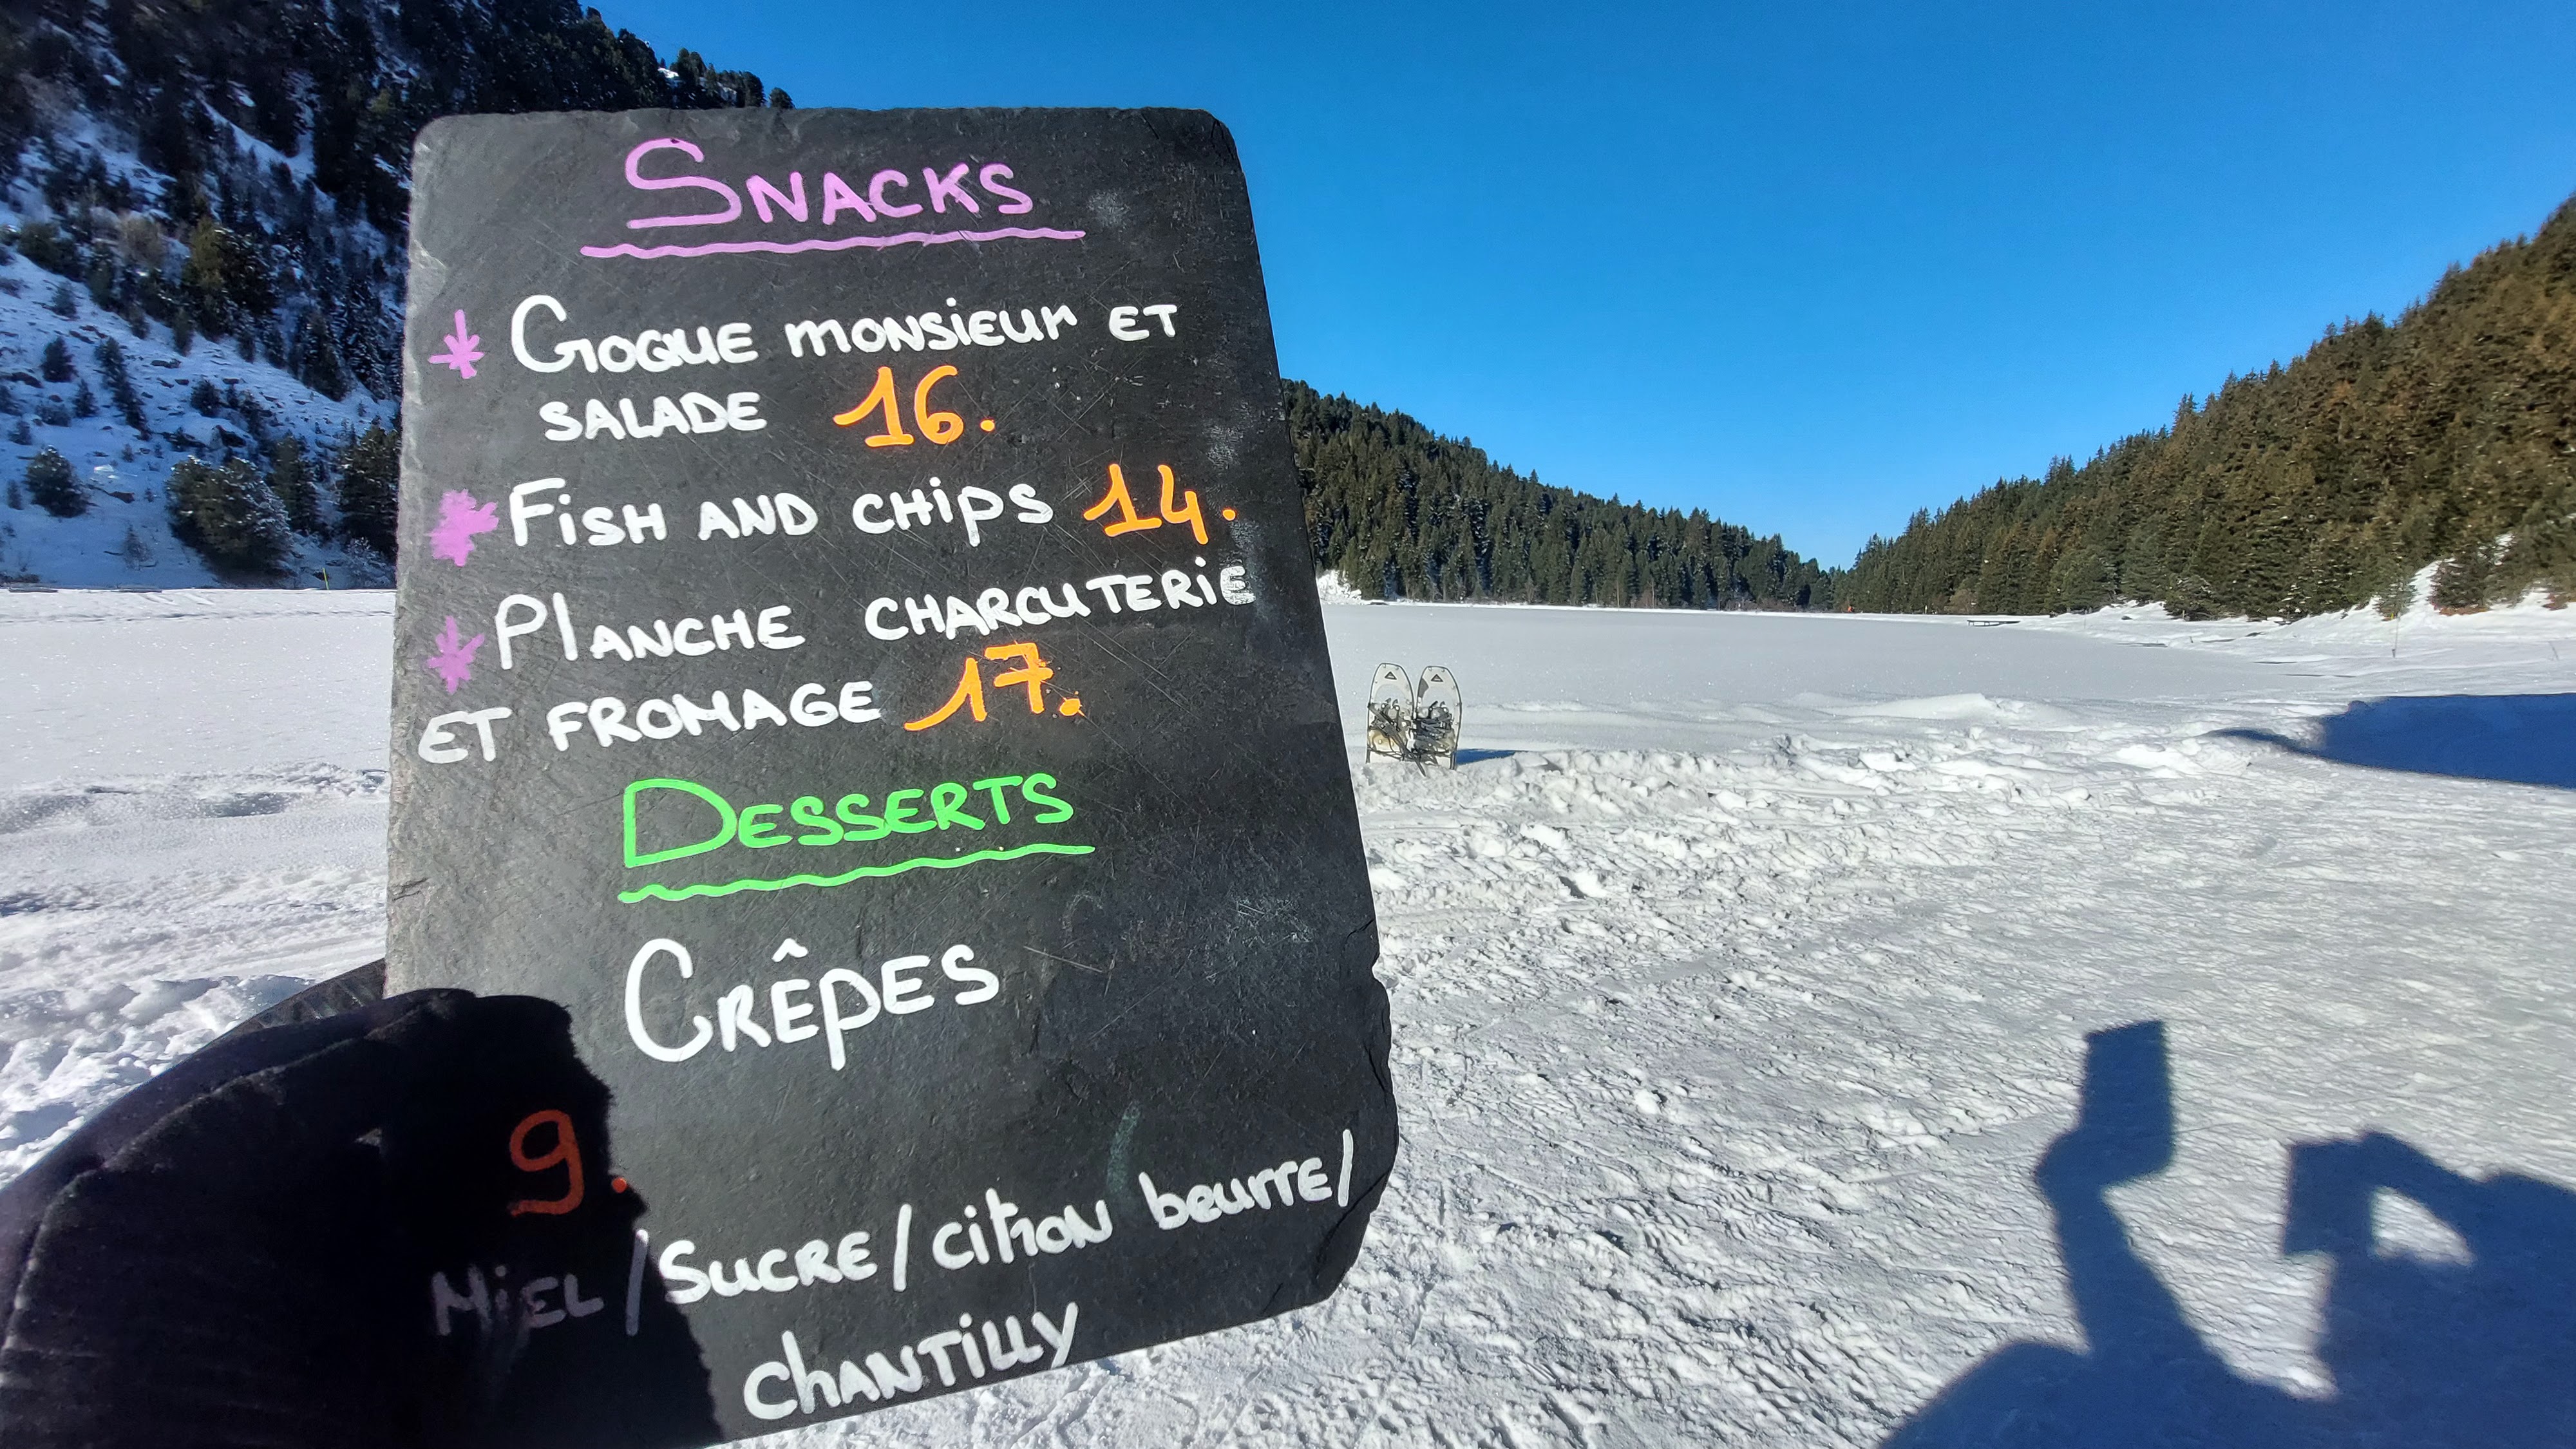 SNACKS
* Croque monsieur ET
SALADE 16.
* Fish AND chips 14.
* Planche charcuterie
ET FROMAGE 17.
DESSERTS
Crêpes
9.
Miel / Sucre / citron beurre /
chantilly